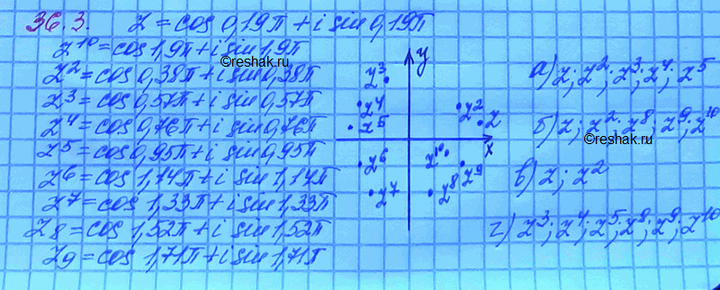 36.3. z = cos 0,19π + i sin 0,19π
z¹⁰ = cos 1,9π + i sin 1,9π
©reshak.ru
z² = cos 0,38π + i sin 0,38π
z³ = cos 0,57π + i sin 0,57π
z⁴ = cos 0,76π + i sin 0,76π
z⁵ = cos 0,95π + i sin 0,95π
z⁶ = cos 1,14π + i sin 1,14π
z⁷ = cos 1,33π + i sin 1,33π
z8 = cos 1,52π + i sin 1,52π
z9 = cos 1,71π + i sin 1,71π
y
z³
z⁴
z²
z
z⁵
x
z⁶
z¹⁰
z⁷
z⁸
z⁹
а) z; z²; z³; z⁴; z⁵
©reshak.ru
б) z; z²; z⁸; z⁹; z¹⁰
в) z; z²
г) z³; z⁴; z⁵; z⁸; z⁹; z¹⁰